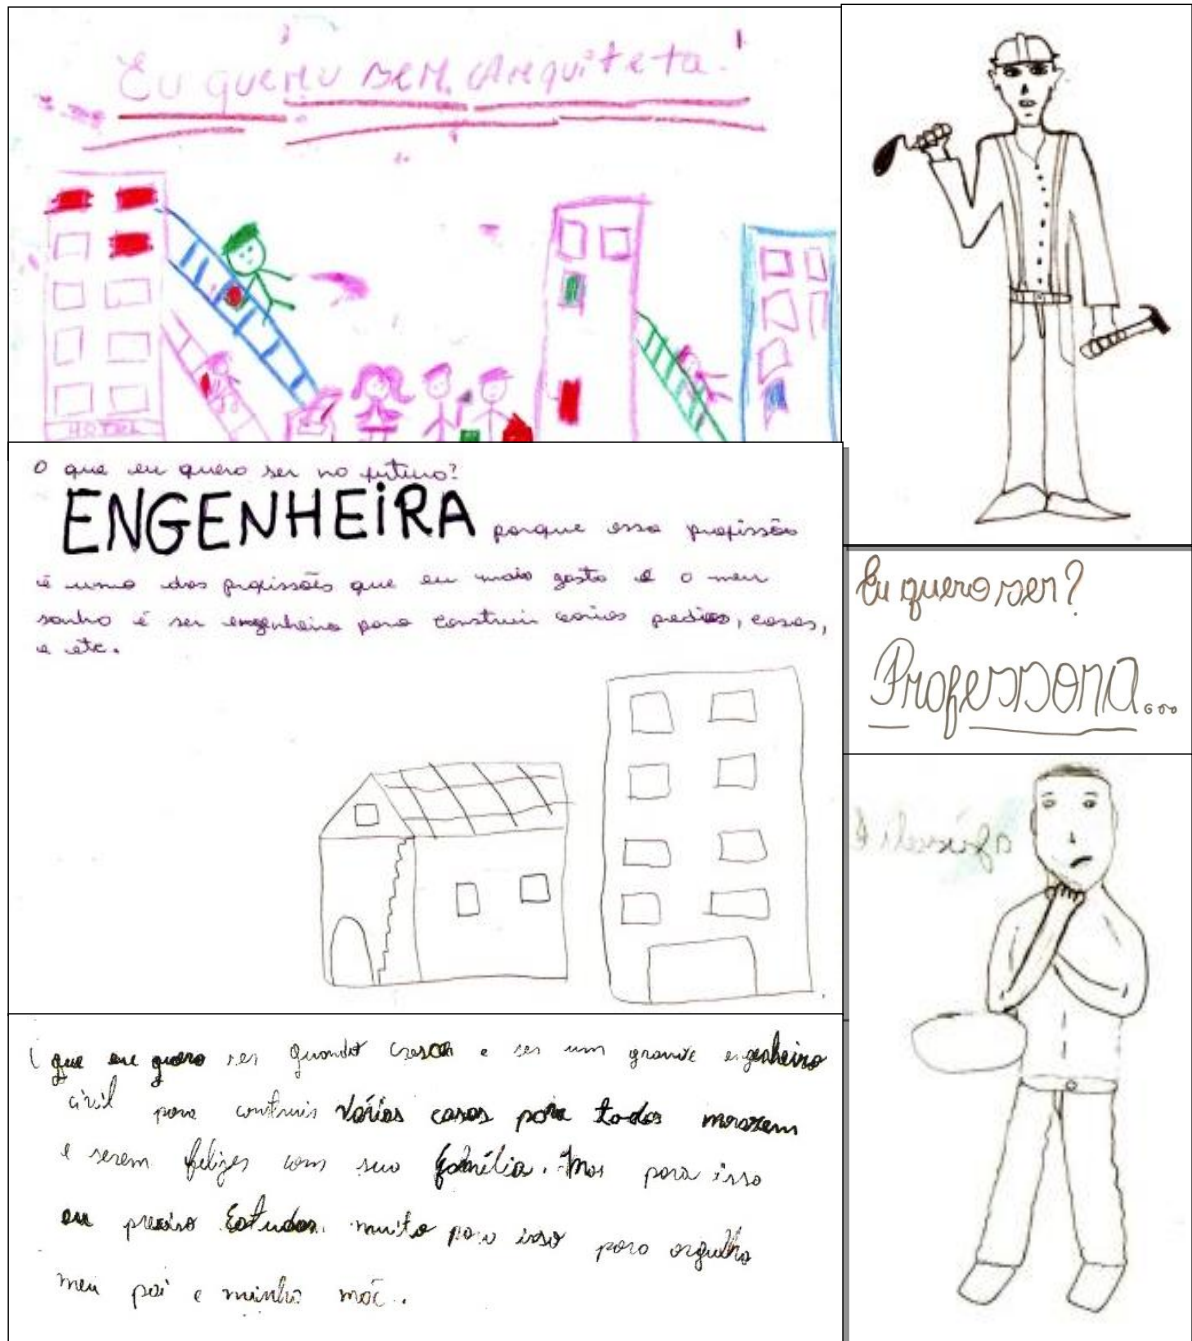 Eu quero ser arquiteta!
HOTEL
O que eu quero ser no futuro?
ENGENHEIRA porque essa profissão
é uma das profissões que eu mais gosto e o meu
sonho é ser engenheira para construir vários predios, casas,
e etc.
Eu quero ser?
Professora...
que eu quero ser quando crescer e ser um grande engenheiro
civil para construir várias casas para todos morarem
e serem felizes com sua família. Mas para isso
eu preciso Estudar muito para isso para orgulho
meu pai e minha mãe.